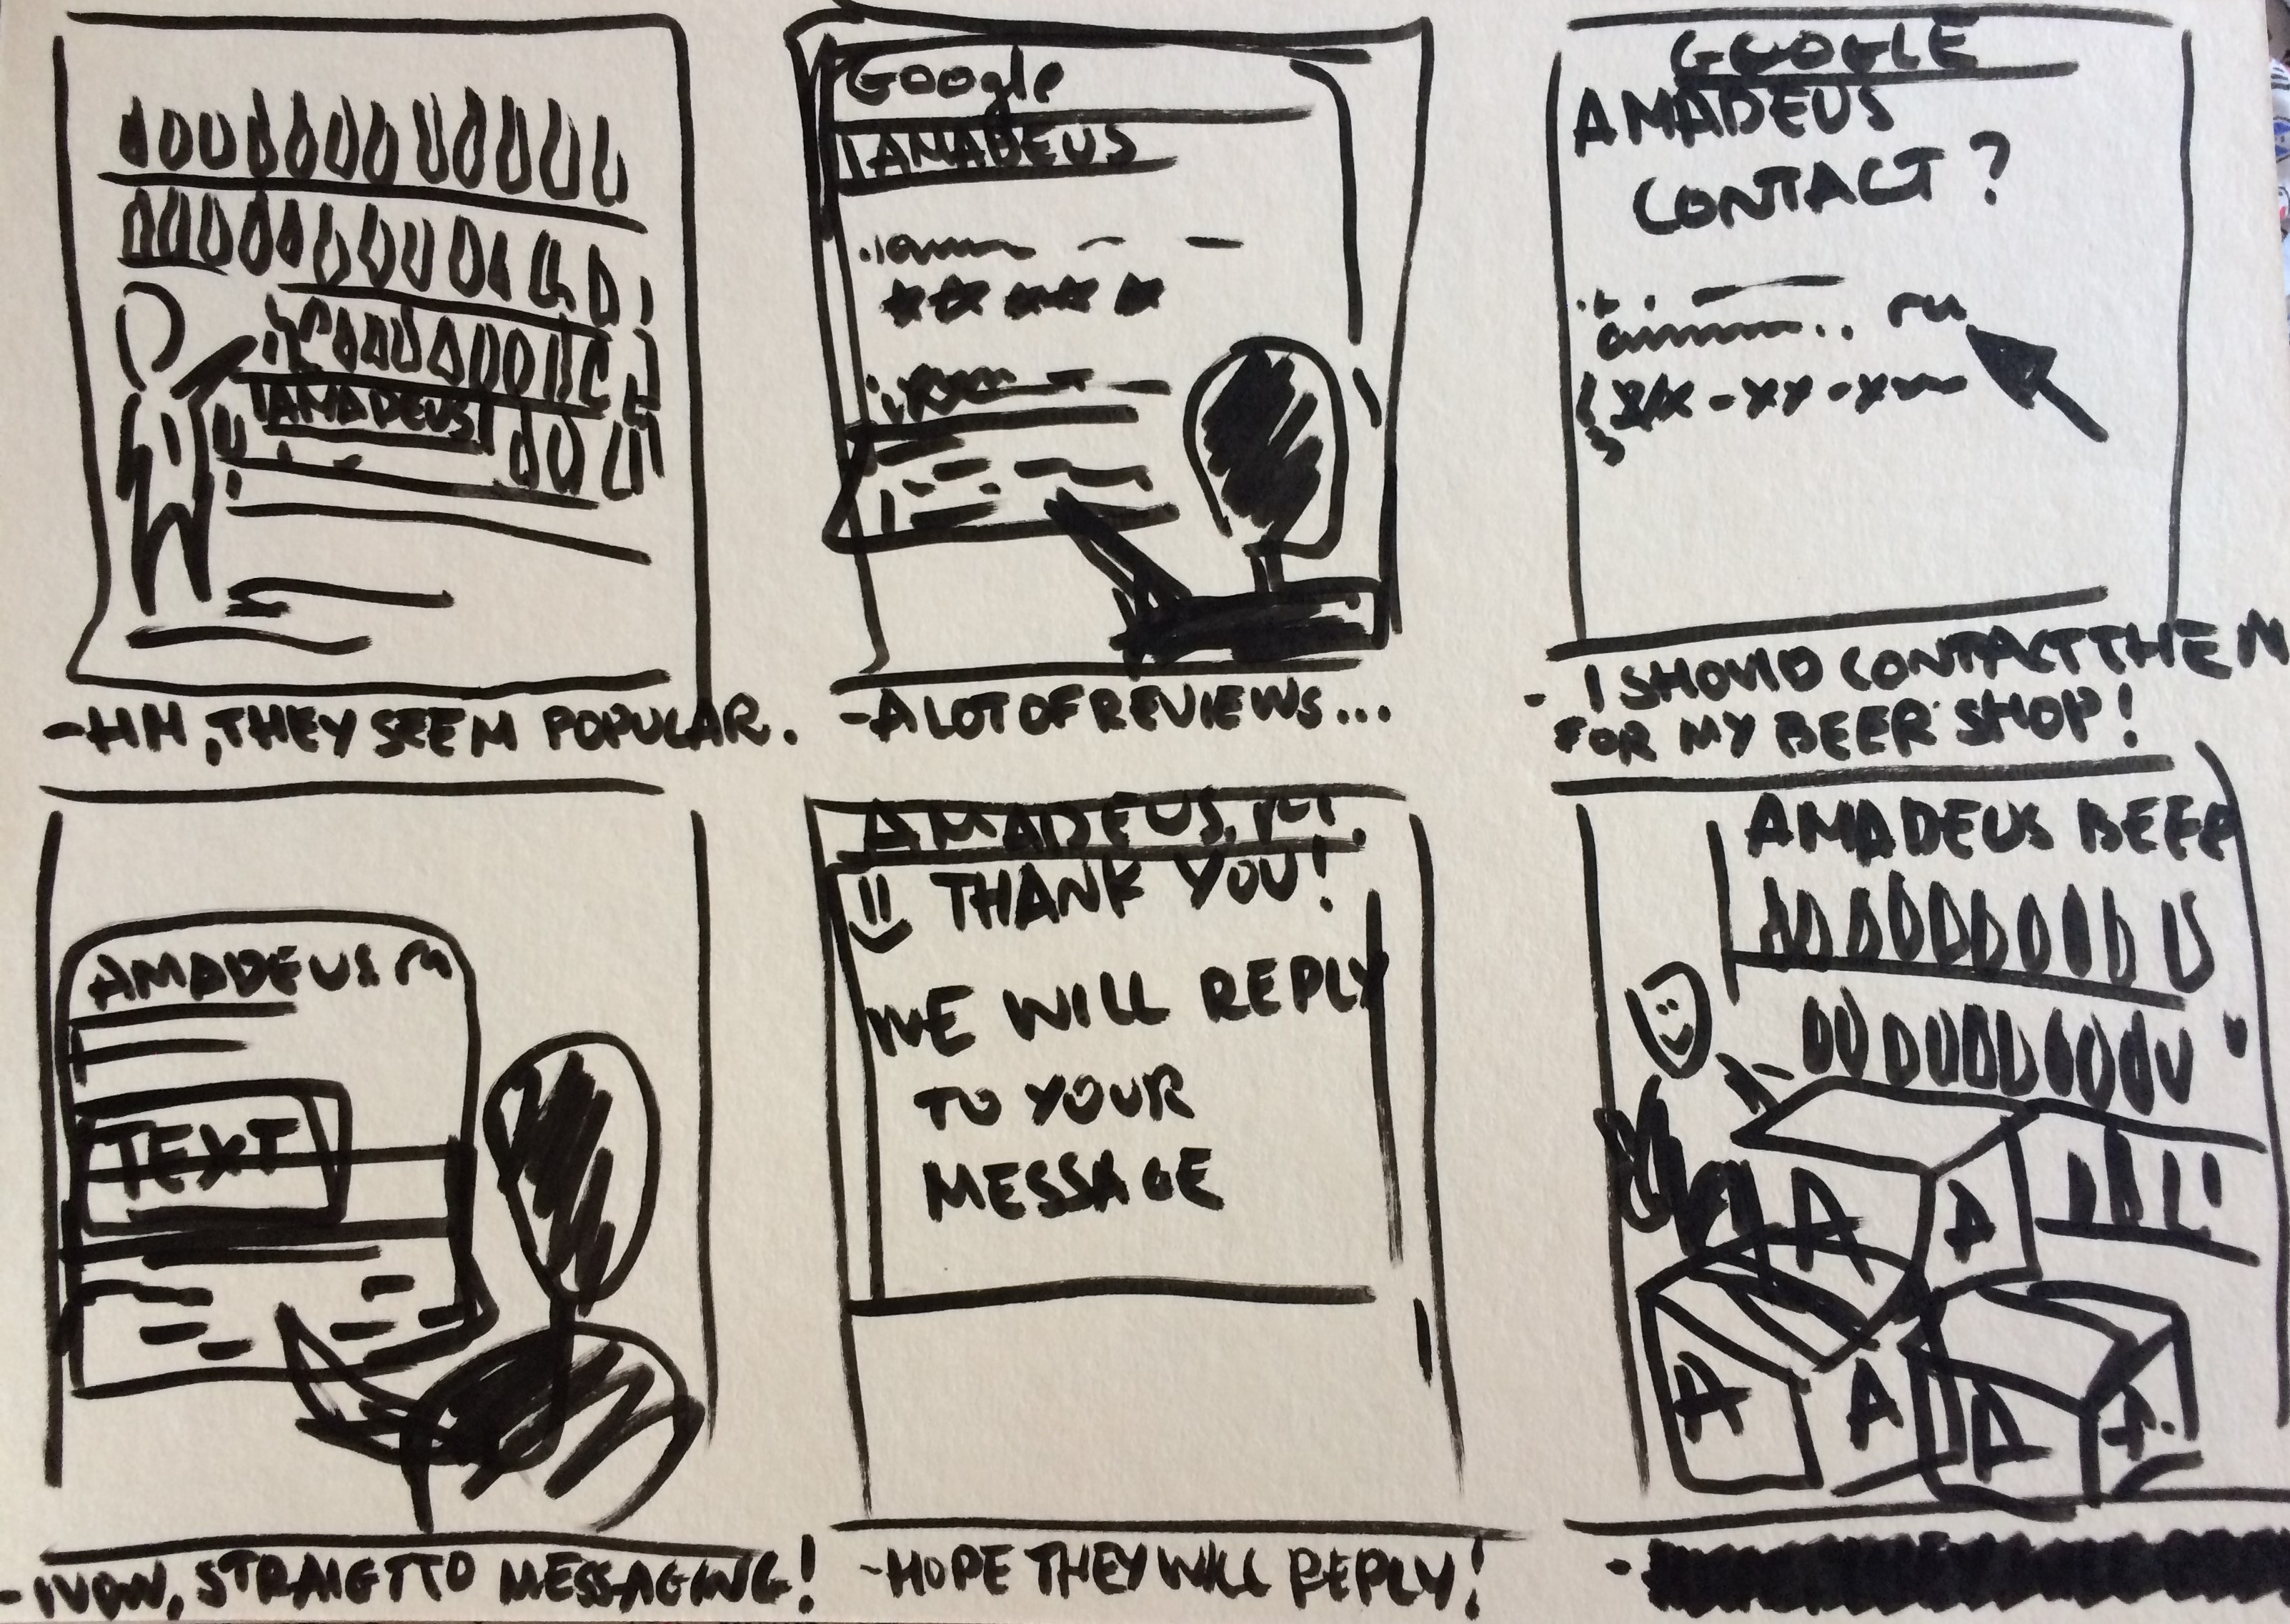 AMADEUS
-HM, THEY SEEM POPULAR.
Google
AMADEUS
-A LOT OF REVIEWS...
GOOGLE
AMADEUS
CONTACT?
ru
XX-XX-X
- I SHOULD CONTACT THEM
FOR MY BEER SHOP!
AMADEUS.ru
TEXT
- NOW, STRAIGTTO MESSAGING!
AMADEUS.ru
THANK YOU!
WE WILL REPLY
TO YOUR
MESSAGE
-HOPE THEY WILL REPLY!
AMADEUS BEER
A A
A A A A